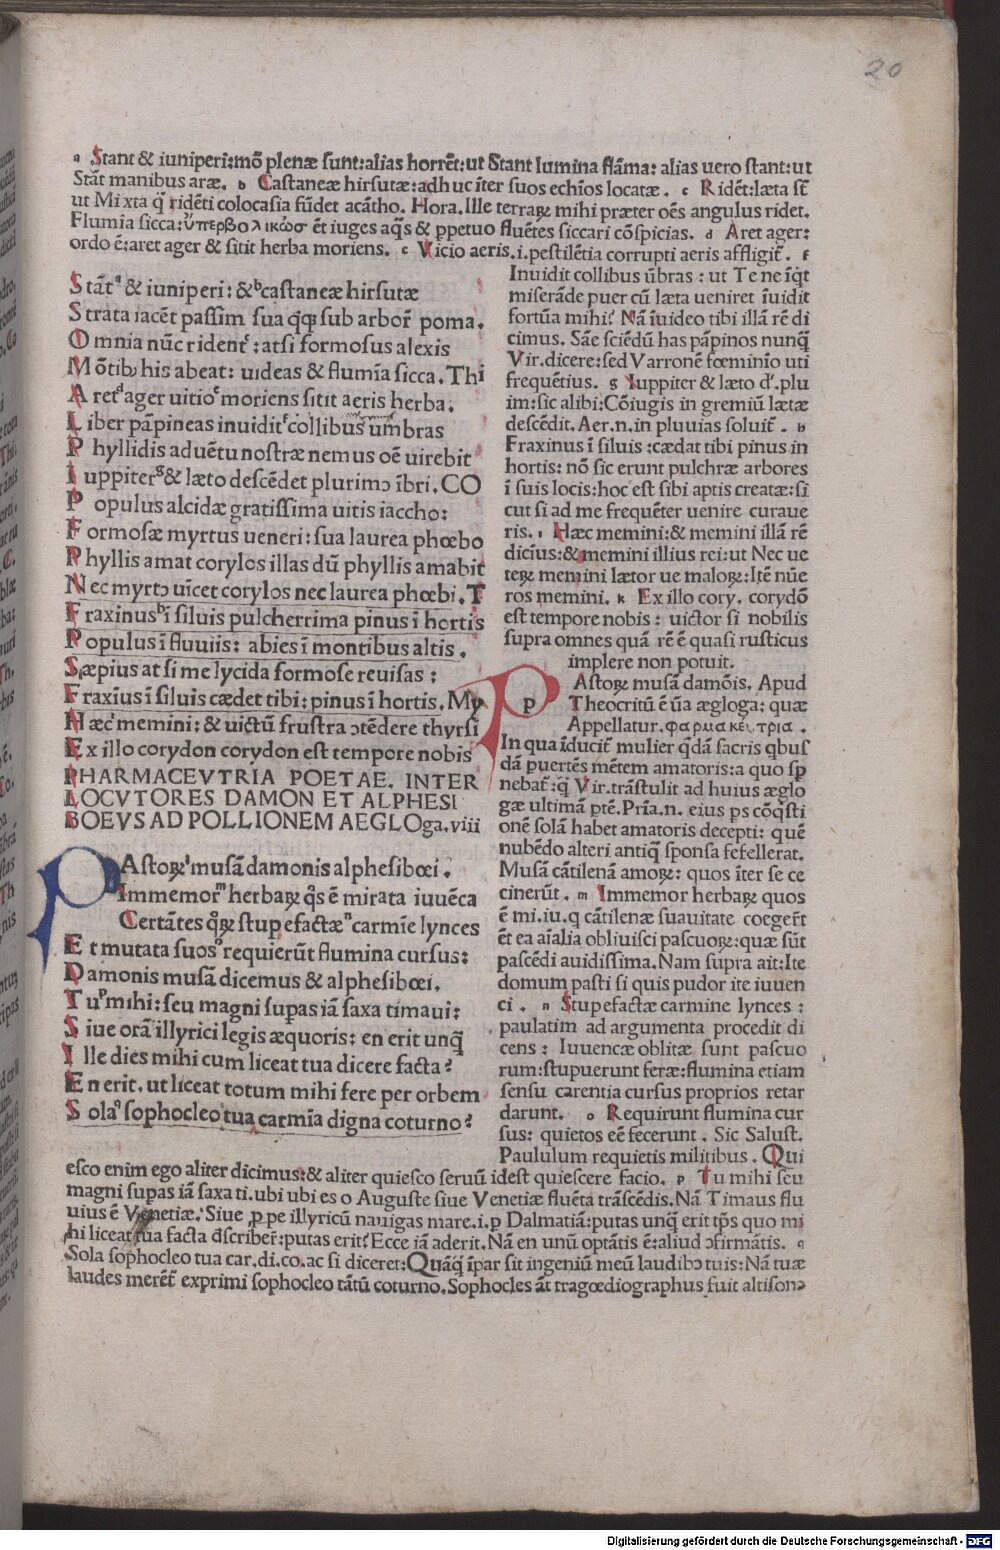 20
a Stant & iuniperi: mõ plenæ sunt: alias horrẽt: ut Stant lumina flãma: alias uero stant: ut
Stãt manibus aræ. b Castaneæ hirsutæ: adhuc ĩter suos echĩos locatæ. c Ridẽt: læta st̃
ut Mixta q̃ ridẽti colocasia fũdet acãtho. Hora. Ille terraꝝ mihi præter oẽs angulus ridet.
Flumĩa sicca: ὑπερβολικῶσ ẽt iuges aq̃s & ꝑpetuo fluẽtes siccari cõspicias. d Aret ager:
ordo ẽ: aret ager & sitit herba moriens. e Vicio aeris .i. pestilẽtia corrupti aeris affligit̃. f
Stãtᵃ & iuniperi: &ᵇ castaneæ hirsutæ
Strata iacẽt passim sua q̃q̃ sub arbor̃ poma.
Omnia nũc ridentᶜ: at si formosus alexis
Mõtibꝫ his abeat: uideas & flumĩa sicca. Thi
Aretᵈ ager uitioᵉ moriens sitit aeris herba.
Liber pãpineas inuiditᶠ collibus umbras
Phyllidis aduẽtu nostræ nemus oẽ uirebit
Iuppiterᵍ & læto descẽdet plurimɔ ĩbri. CO
Populus alcidæ gratissima uitis iaccho:
Formosæ myrtus ueneri: sua laurea phœbo
Phyllis amat corylos illas dũ phyllis amabit
Nec myrtɔ uĩcet corylos nec laurea phœbi. T
Fraxinusʰ ĩ siluis pulcherrima pinus ĩ hortis
Populus ĩ fluuiis: abies ĩ montibus altis.
Sæpius at si me lycida formose reuisas:
Fraxĩus ĩ siluis cædet tibi: pinus ĩ hortis. My
Hæcⁱ memini: & uictũ frustra ɔtẽdere thyrsĩ
Ex illo corydon corydon est tempore nobis
PHARMACEVTRIA POETAE. INTER
LOCVTORES DAMON ET ALPHESI
BOEVS AD POLLIONEM AEGLOga. viii
PAstoꝝˡ musã damonis alphesibœi.
Immemorᵐ herbaꝝ q̃s ẽ mirata iuuẽca
Certãtes q̃ꝝ stupefactæⁿ carmĩe lynces
Et mutata suosᵒ requierũt flumina cursus:
Damonis musã dicemus & alphesibœi.
Tuᵖ mihi: seu magni supas iã saxa timaui:
Siue orã illyrici legis æquoris: en erit unq̃
Ille dies mihi cum liceat tua dicere facta?
En erit. ut liceat totum mihi ferre per orbem
Solaᑫ sophocleo tua carmĩa digna coturno?
Inuidit collibus ũbras: ut Te ne ĩq̃t
miserãde puer cũ læta ueniret ĩuidit
fortũa mihi? Nã ĩuideo tibi illã rẽ di
cimus. Sãe sciẽdũ has pãpinos nunq̃
Vir. dicere: sed Varronẽ fœminĩo uti
frequẽtius. g Iuppiter & læto dᵉ. plu
im: sic alibi: Cõiugis in gremiũ lætæ
descẽdit. Aer .n. in pluuias soluit̃. h
Fraxinus ĩ siluis: cædat tibi pinus in
hortis: nõ sic erunt pulchræ arbores
ĩ suis locis: hoc est sibi aptis creatæ: si
cut si ad me frequẽter uenire curaue
ris. i Hæc memini: & memini illã rẽ
dicĩus: & memini illius rei: ut Nec ue
teꝝ memini lætor ue maloꝝ: Itẽ nũe
ros memini. k Ex illo cory. corydõ
est tempore nobis: uictor si nobilis
supra omnes quã rẽ ẽ quasi rusticus
implere non potuit.
PAstoꝝ musã damõis. Apud
Theocritũ ẽ ũa ægloga: quæ
Appellatur. φαρμακευτρια.
In qua ĩducit̃ mulier q̃dã sacris q̃bus
dã ꝑuertẽs mẽtem amatoris: a quo sp
nebat̃: q̃ Vir. trãstulit ad huius æglo
gæ ultimã ptẽ. Prĩa .n. eius ps cõq̃sti
onẽ solã habet amatoris decepti: quẽ
nubẽdo alteri antiq̃ sponsa fefellerat.
Musã cãtilenã amoꝝ: quos ĩter se ce
cinerũt. m Immemor herbaꝝ quos
ẽ mi. iu. q cãtilenæ suauitate coeger̃t
ẽt ea aĩalia obliuisci pascuoꝝ: quæ sũt
pascẽdi auidissima. Nam supra ait: Ite
domum pasti si quis pudor ite iuuen
ci. n Stupefactæ carmine lynces:
paulatim ad argumenta procedit di
cens: Iuuencæ oblitæ sunt pascuo
rum: stupuerunt feræ: flumina etiam
sensu carentia cursus proprios retar
darunt. o Requirunt flumina cur
sus: quietos eẽ fecerunt. Sic Salust.
Paululum requietis militibus. Qui
esco enim ego aliter dicimus: & aliter quiesco seruũ idest quiescere facio. p Tu mihi seu
magni supas iã saxa ti. ubi ubi es o Auguste siue Venetiæ fluẽta trãscẽdis. Nã Timaus flu
uius ẽ Venetiæ. Siue ꝓpe illyricũ nauigas mare .i. ꝑ Dalmatiã: putas unq̃ erit tp̃s quo mi
hi liceat tua facta dscriber̃: putas erit? Ecce iã aderit. Nã en unũ optãtis ẽ: aliud ɔfirmãtis. q
Sola sophocleo tua car. di. co. ac si diceret: Quãq̃ ĩpar sit ingeniũ meũ laudibɔ tuis: Nã tuæ
laudes merẽt̃ exprimi sophocleo tãtũ coturno. Sophocles ãt tragœdiographus fuit altisonɔ
Digitalisierung gefördert durch die Deutsche Forschungsgemeinschaft - DFG